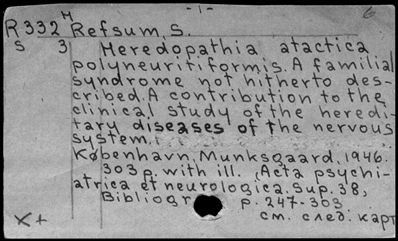 - 1 - 6
R332 H Refsum, S.
S 3 Heredopathia atactica
polyneuritiformis. A familial
syndrome not hitherto des-
cribed. A contribution to the
clinical study of the heredi-
tary diseases of the nervous
system.
København, Munksgaard, 1946.
303 p. with ill. (Acta psychi-
atrica et neurologica. Sup. 38,
Bibliogr p. 247-303
X+ см. след. карт